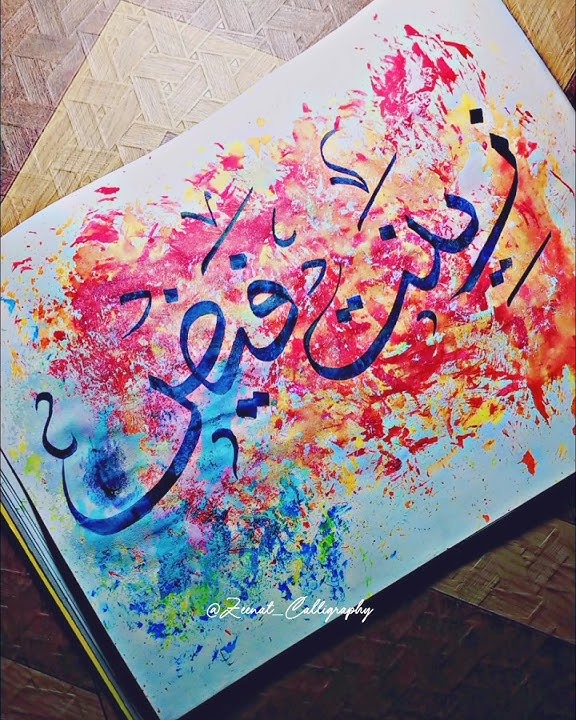 زینت فیض
@Zeenat_Calligraphy